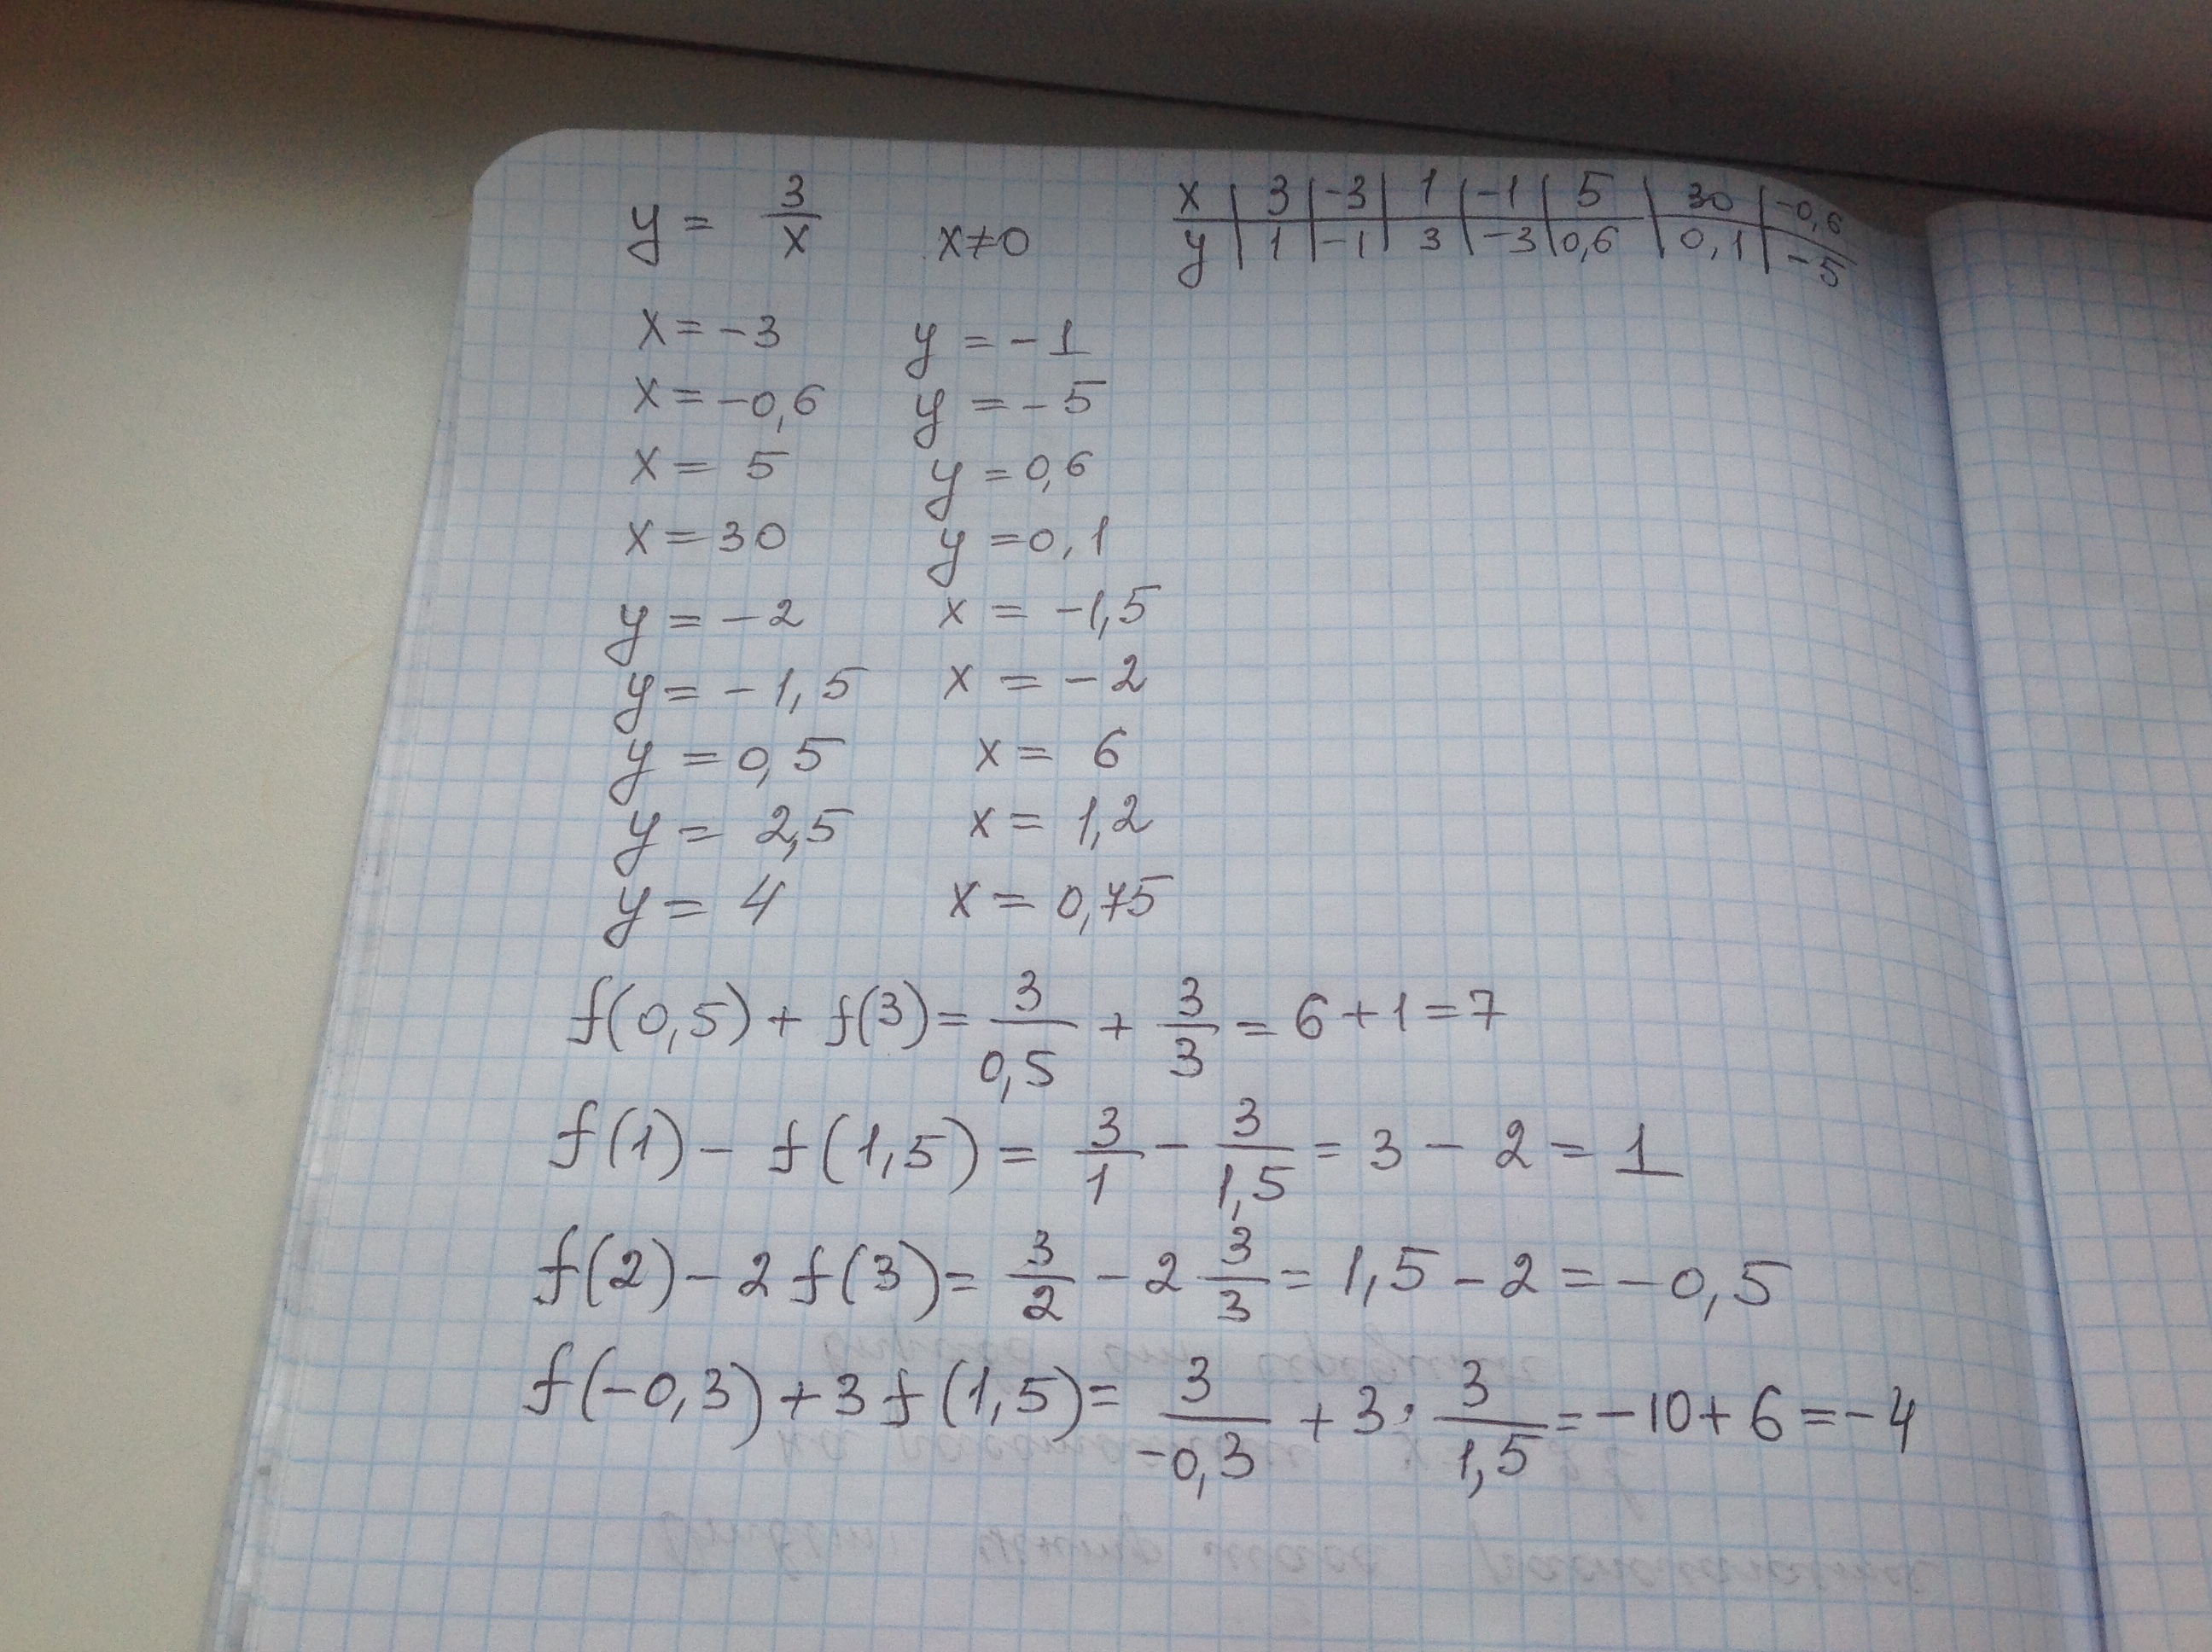 y = 3/x   x≠0   x | 3 | -3 | 1 | -1 | 5 | 30 | -0,6
y | 1 | -1 | 3 | -3 | 0,6 | 0,1 | -5
x = -3   y = -1
x = -0,6   y = -5
x = 5   y = 0,6
x = 30   y = 0,1
y = -2   x = -1,5
y = -1,5   x = -2
y = 0,5   x = 6
y = 2,5   x = 1,2
y = 4   x = 0,75
f(0,5) + f(3) = 3/0,5 + 3/3 = 6 + 1 = 7
f(1) - f(1,5) = 3/1 - 3/1,5 = 3 - 2 = 1
f(2) - 2 f(3) = 3/2 - 2 3/3 = 1,5 - 2 = -0,5
f(-0,3) + 3 f(1,5) = 3/-0,3 + 3 · 3/1,5 = -10 + 6 = -4